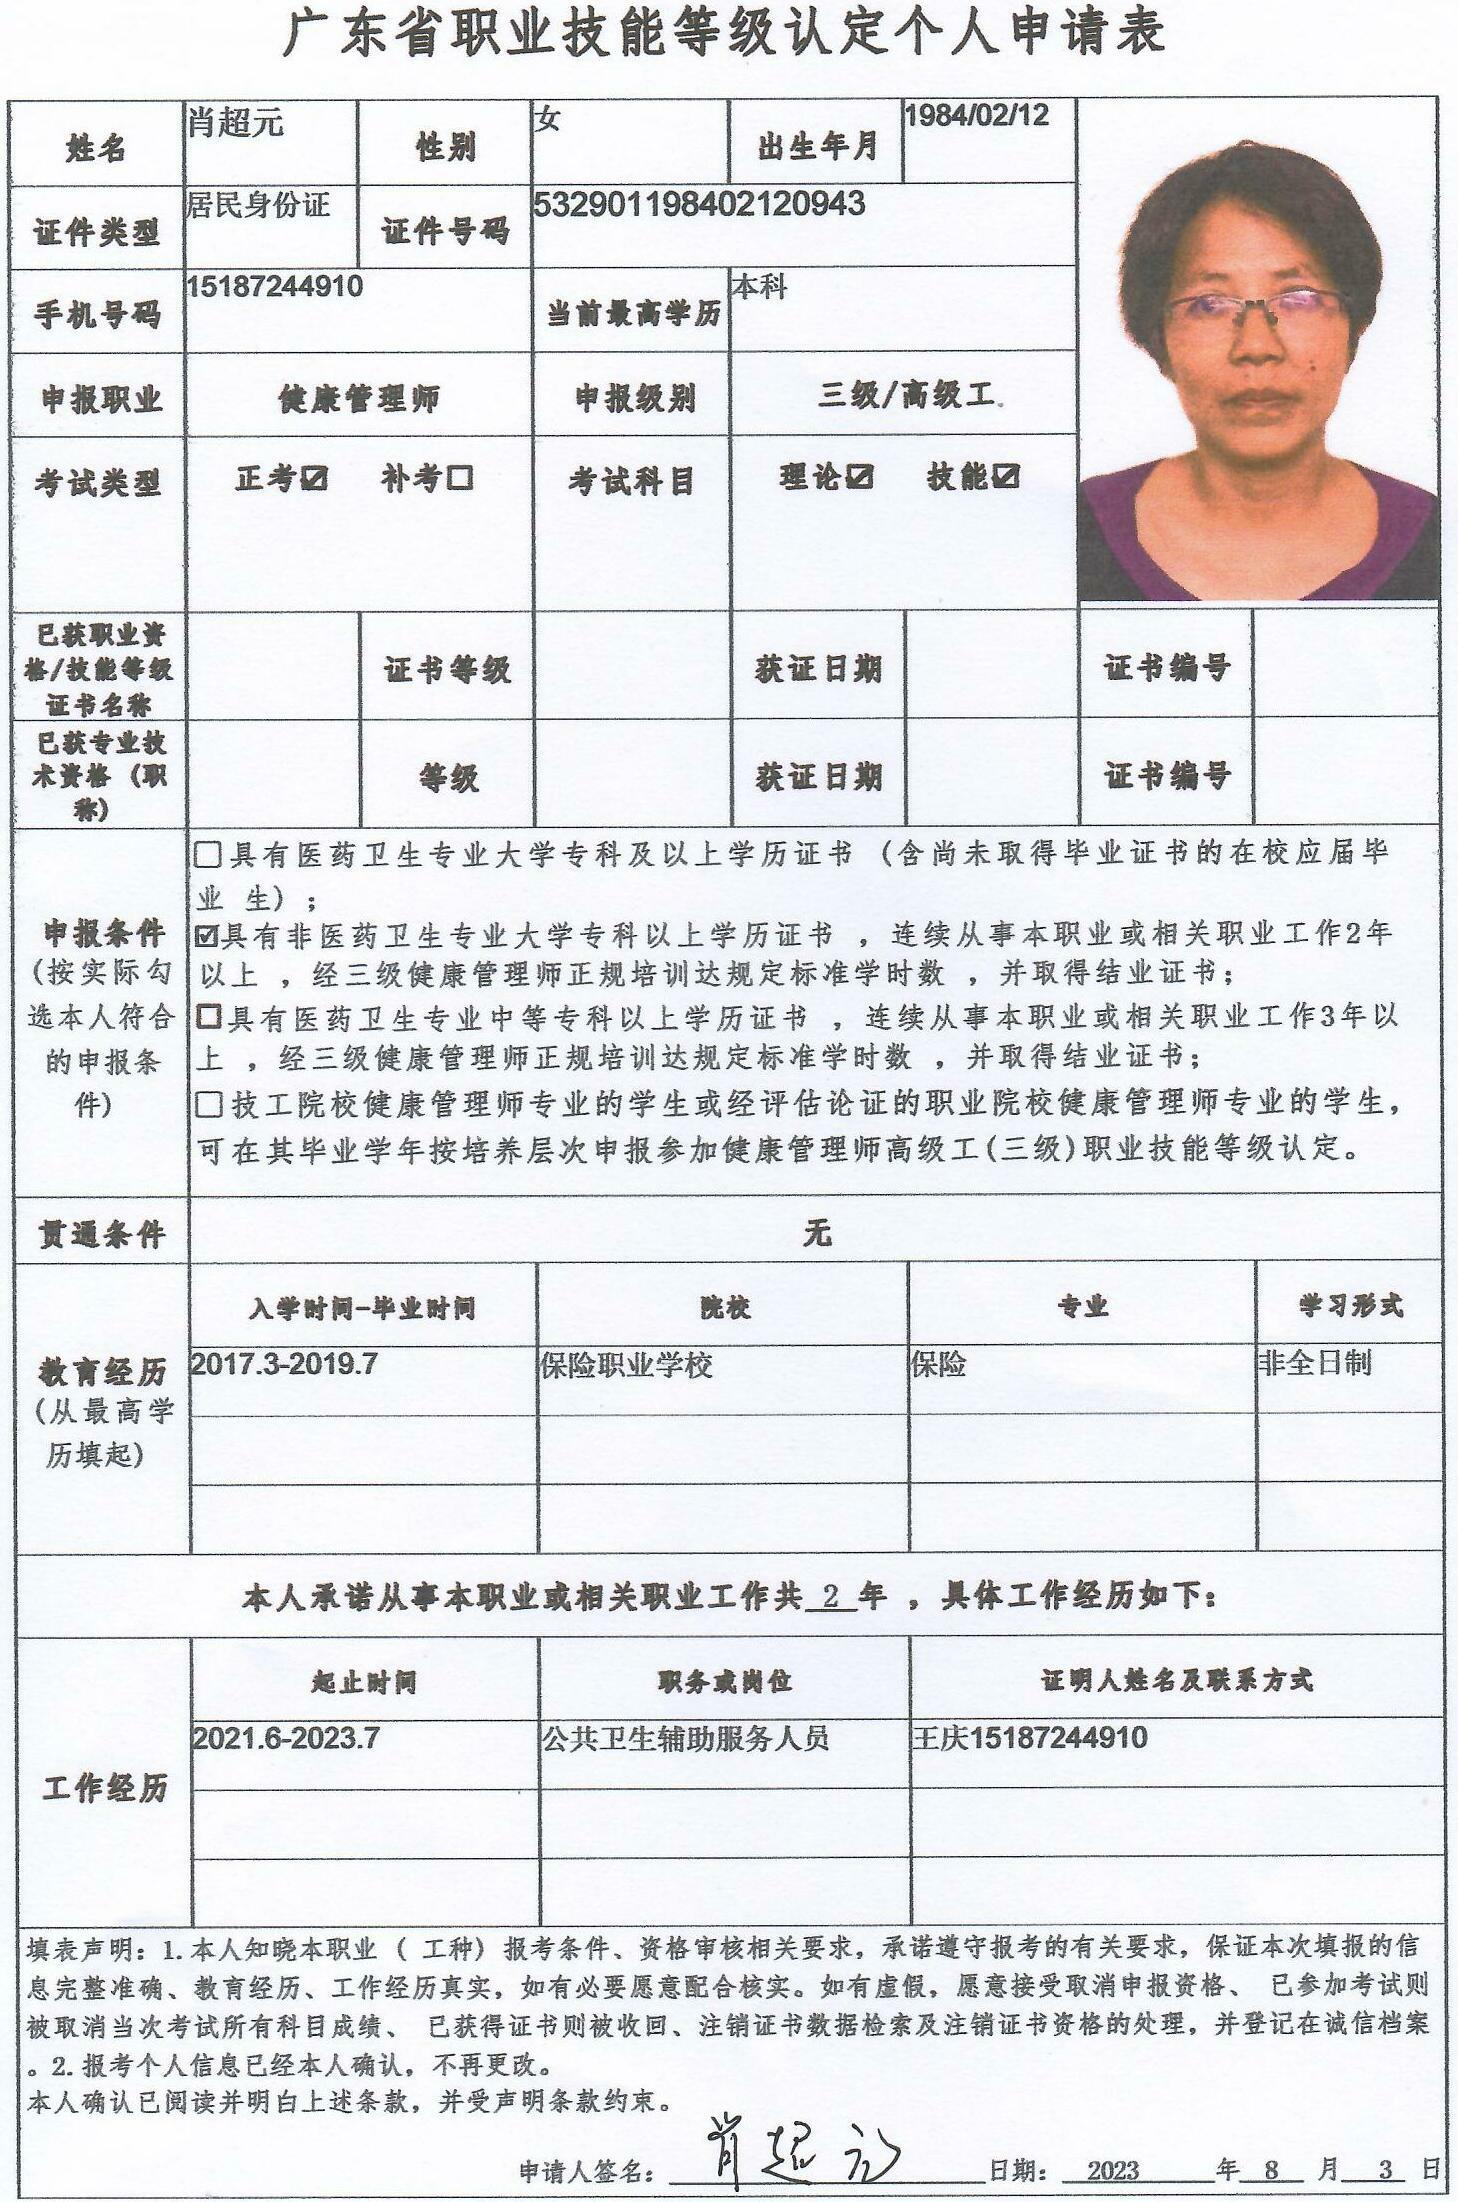 广东省职业技能等级认定个人申请表
姓名 肖超元 性别 女 出生年月 1984/02/12
证件类型 居民身份证 证件号码 532901198402120943
手机号码 15187244910 当前最高学历 本科
申报职业 健康管理师 申报级别 三级/高级工
考试类型 正考☑ 补考☐ 考试科目 理论☑ 技能☑
已获职业资
格/技能等级 证书等级 获证日期 证书编号
证书名称
已获专业技
术资格（职 等级 获证日期 证书编号
称）
申报条件
(按实际勾
选本人符合
的申报条
件)
☐具有医药卫生专业大学专科及以上学历证书 （含尚未取得毕业证书的在校应届毕
业 生）；
☑具有非医药卫生专业大学专科以上学历证书 ，连续从事本职业或相关职业工作2年
以上 ，经三级健康管理师正规培训达规定标准学时数 ，并取得结业证书；
☐具有医药卫生专业中等专科以上学历证书 ，连续从事本职业或相关职业工作3年以
上 ，经三级健康管理师正规培训达规定标准学时数 ，并取得结业证书；
☐技工院校健康管理师专业的学生或经评估论证的职业院校健康管理师专业的学生，
可在其毕业学年按培养层次申报参加健康管理师高级工(三级)职业技能等级认定。
贯通条件 无
教育经历
(从最高学
历填起)
入学时间-毕业时间 院校 专业 学习形式
2017.3-2019.7 保险职业学校 保险 非全日制
本人承诺从事本职业或相关职业工作共 2 年 ，具体工作经历如下：
工作经历
起止时间 职务或岗位 证明人姓名及联系方式
2021.6-2023.7 公共卫生辅助服务人员 王庆15187244910
填表声明：1.本人知晓本职业 （ 工种）报考条件、资格审核相关要求，承诺遵守报考的有关要求，保证本次填报的信
息完整准确、教育经历、工作经历真实，如有必要愿意配合核实。如有虚假，愿意接受取消申报资格、 已参加考试则
被取消当次考试所有科目成绩、 已获得证书则被收回、注销证书数据检索及注销证书资格的处理，并登记在诚信档案
。2.报考个人信息已经本人确认，不再更改。
本人确认已阅读并明白上述条款，并受声明条款约束。
申请人签名： 肖超元 日期： 2023 年 8 月 3 日